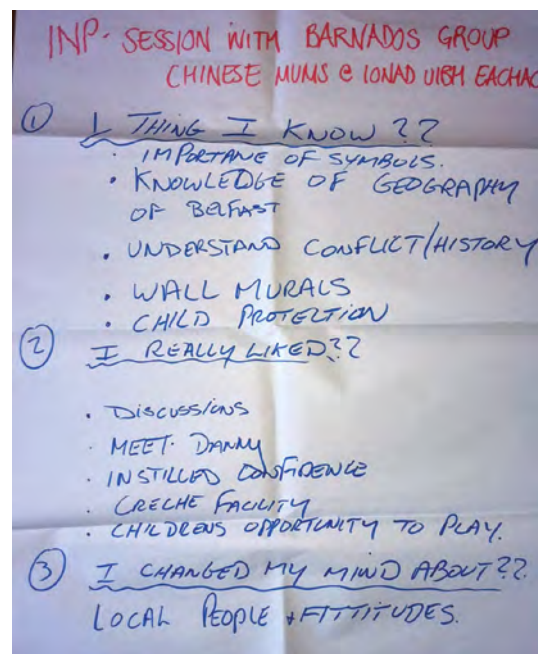 INP. SESSION WITH BARNADOS GROUP
CHINESE MUMS @ IONAD UIBH EACHAC
① 1 THING I KNOW ??
· IMPORTANE OF SYMBOLS.
· KNOWLEDGE OF GEOGRAPHY
OF BELFAST
· UNDERSTAND CONFLICT/HISTORY
· WALL MURALS
· CHILD PROTECTION
② I REALLY LIKED??
· DISCUSSIONS
· MEET DANNY
· INSTILLED CONFIDENCE
· CRECHE FACILITY
· CHILDRENS OPPORTUNITY TO PLAY.
③ I CHANGED MY MIND ABOUT??.
LOCAL PEOPLE + ATTITUDES.